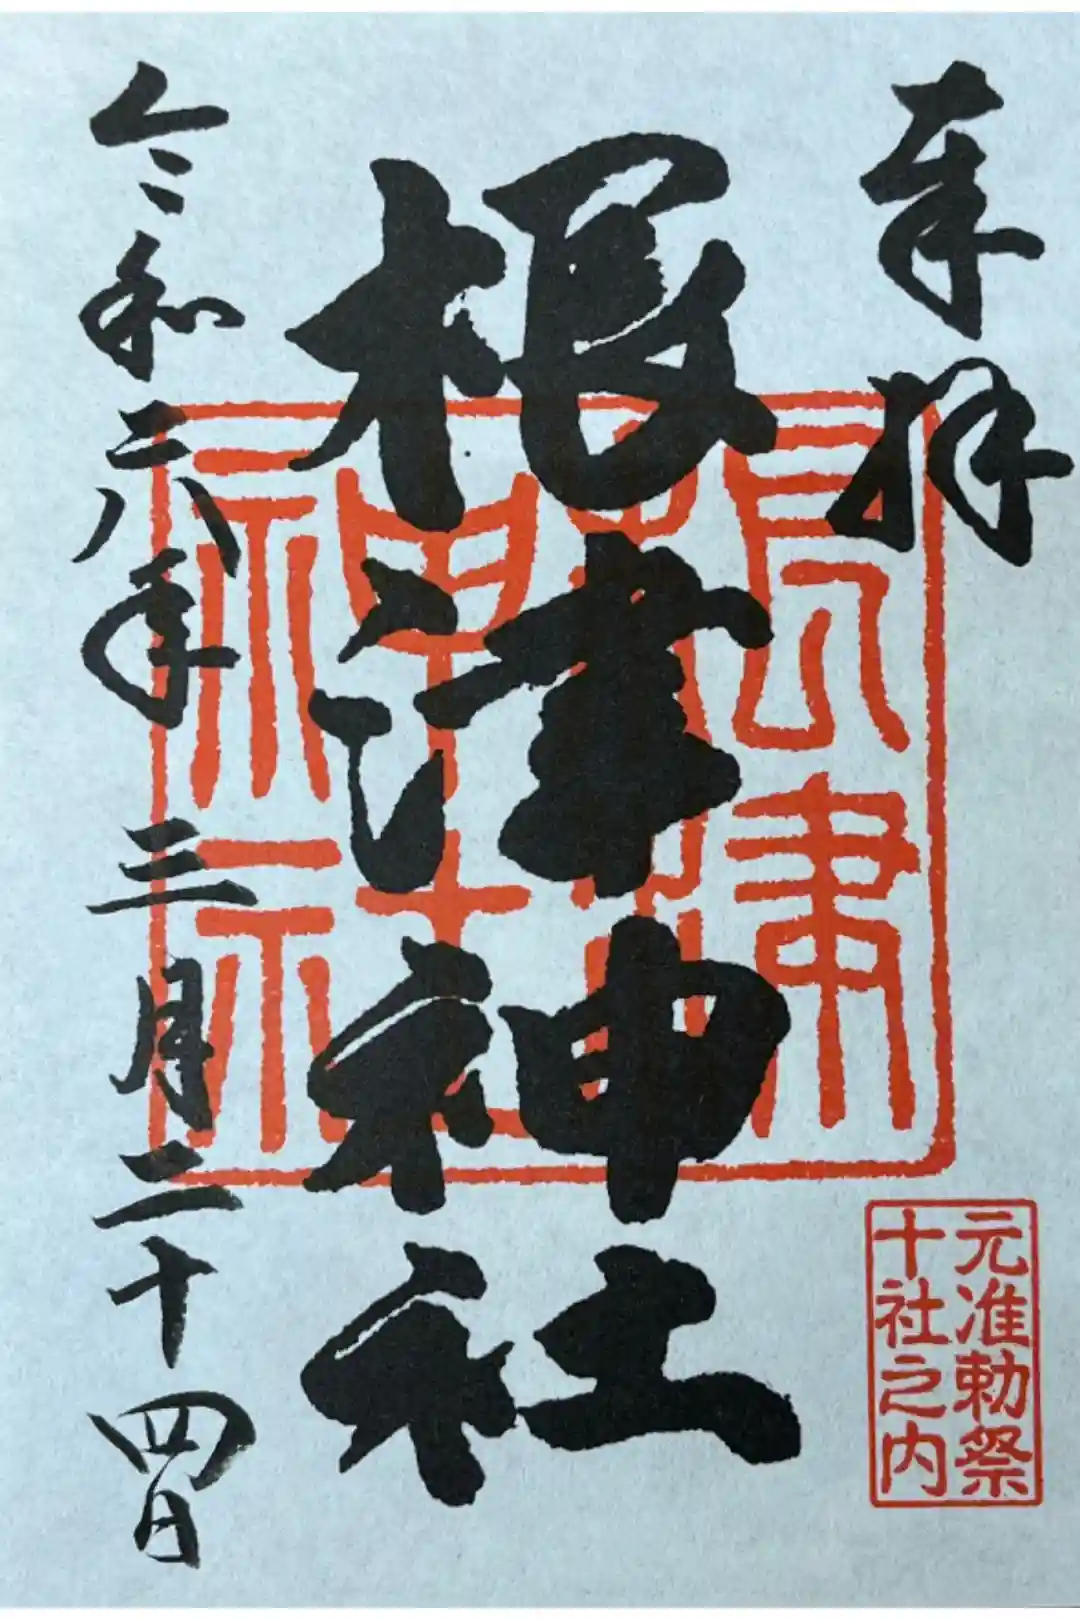 奉拝
根津神社
令和六年三月二十四日
根津
神社
元准勅祭
十社之内